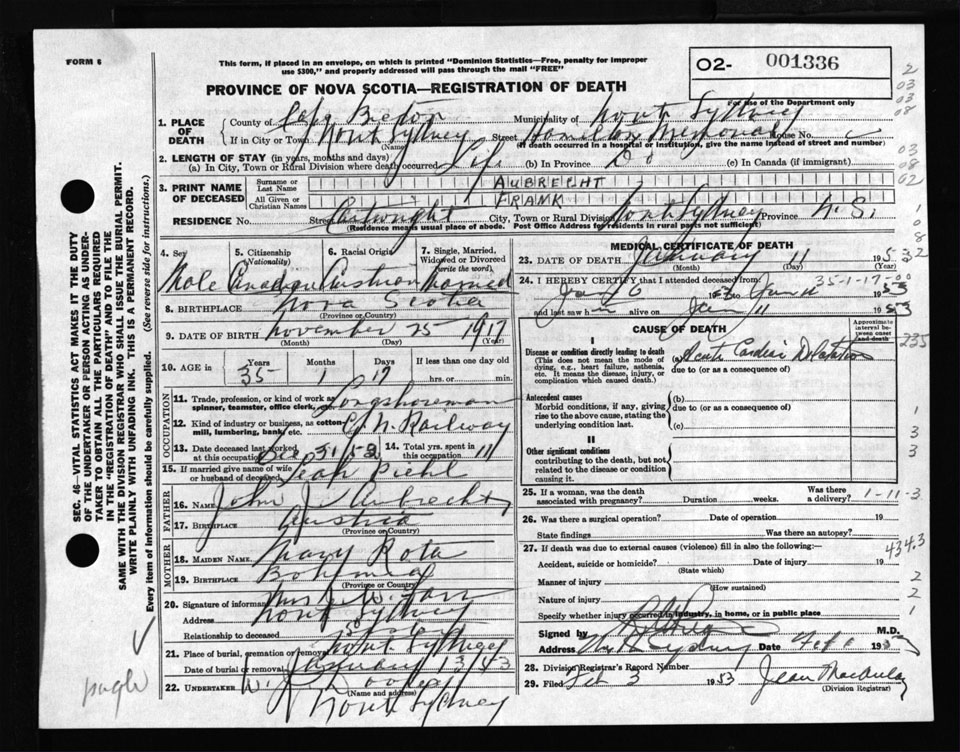 FORM 6
This form, if placed in an envelope, on which is printed "Dominion Statistics—Free, penalty for improper
use $300," and properly addressed will pass through the mail "FREE"
O2- 001336
For use of the Department only
PROVINCE OF NOVA SCOTIA—REGISTRATION OF DEATH
1. PLACE OF DEATH
County of Cape Breton Municipality of North Sydney
If in City or Town North Sydney Street Hamilton Memorial House No.
(Name) (If death occurred in a hospital or institution, give the name instead of street and number)
2. LENGTH OF STAY (in years, months and days)
(a) In City, Town or Rural Division where death occurred Life (b) In Province Do (c) In Canada (if immigrant)
3. PRINT NAME OF DECEASED
Surname or Last Name AUBRECHT
All Given or Christian Names FRANK
RESIDENCE No. Street Cartwright City, Town or Rural Division North Sydney Province N.S.
(Residence means usual place of abode. Post Office Address for residents in rural parts not sufficient)
4. Sex Male
5. Citizenship (Nationality) Canadian
6. Racial Origin Austrian
7. Single, Married, Widowed or Divorced (write the word) Married
8. BIRTHPLACE Nova Scotia
(Province or Country)
9. DATE OF BIRTH November 25 1917
(Month) (Day) (Year)
10. AGE in Years 35 Months 1 Days 17 If less than one day old hrs. or min.
OCCUPATION
11. Trade, profession, or kind of work as spinner, teamster, office clerk, Longshoreman
12. Kind of industry or business, as cotton mill, lumbering, bank, etc. C.N. Railway
13. Date deceased last worked at this occupation Dec 31/52
14. Total yrs. spent in this occupation 11
15. If married give name of wife or husband of deceased Jean Piehl
FATHER
16. NAME John J. Aubrecht
17. BIRTHPLACE Austria
(Province or Country)
MOTHER
18. MAIDEN NAME Mary Kota
19. BIRTHPLACE Bohemia
(Province or Country)
20. Signature of informant Mrs
Address North Sydney
Relationship to deceased
21. Place of burial, cremation or removal North Sydney
Date of burial or removal January 13/53
22. UNDERTAKER W. J. Dooley
(Name and address)
North Sydney
MEDICAL CERTIFICATE OF DEATH
23. DATE OF DEATH January 11 1953
(Month) (Day) (Year)
24. I HEREBY CERTIFY that I attended deceased from
Jan 6 1953 to Jan 11 1953
and last saw h alive on Jan 11 1953
35-1-17-00
CAUSE OF DEATH
Approximate interval between onset and death
I
Disease or condition directly leading to death (a) Acute Cardiac Dilatation
(This does not mean the mode of dying, e.g., heart failure, asthenia, etc. It means the disease, injury, or complication which caused death.)
due to (or as a consequence of)
Antecedent causes
Morbid conditions, if any, giving rise to the above cause, stating the underlying condition last.
(b)
due to (or as a consequence of)
(c)
II
Other significant conditions
contributing to the death, but not related to the disease or condition causing it.
25. If a woman, was the death associated with pregnancy? Duration weeks. Was there a delivery?
1-11-3
26. Was there a surgical operation? Date of operation 19
State findings Was there an autopsy?
27. If death was due to external causes (violence) fill in also the following:—
434.3
Accident, suicide or homicide? Date of injury 19
(State which)
Manner of injury
(How sustained)
Nature of injury
Specify whether injury occurred in industry, in home, or in public place
Signed by M.D.
Address N. Sydney Date Feb 195
28. Division Registrar's Record Number
29. Filed Feb 3 1953 Jean MacAulay
(Division Registrar)
2
03
03
08
03
08
02
1
0
8
32
235
1
3
3
2
2
1
SEC. 46—VITAL STATISTICS ACT MAKES IT THE DUTY
OF THE UNDERTAKER OR PERSON ACTING AS UNDER-
TAKER TO OBTAIN ALL THE PARTICULARS REQUIRED
IN THE "REGISTRATION OF DEATH" AND TO FILE THE
SAME WITH THE DIVISION REGISTRAR WHO SHALL ISSUE THE BURIAL PERMIT.
WRITE PLAINLY WITH UNFADING INK. THIS IS A PERMANENT RECORD.
Every item of information should be carefully supplied. (See reverse side for instructions.)